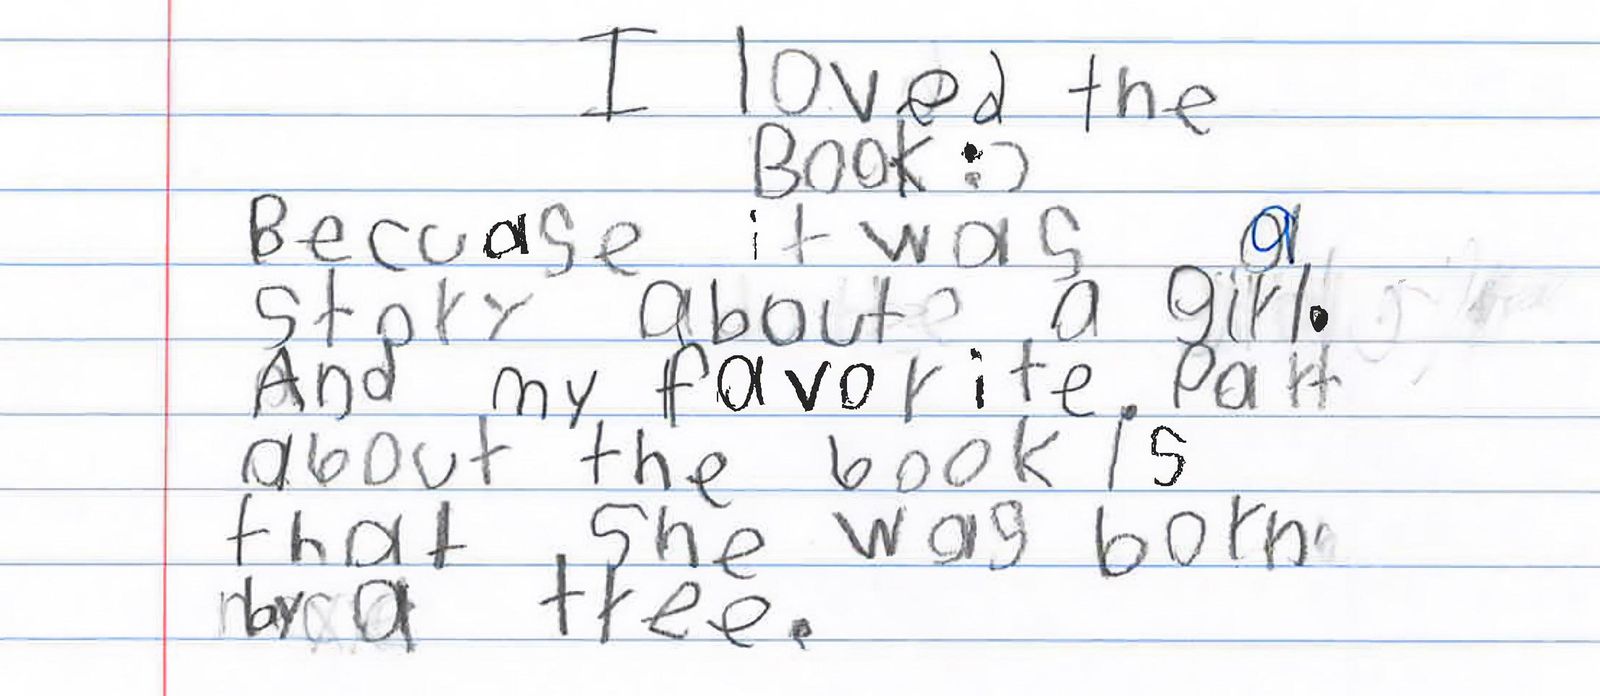 I loved the
Book:)
Becuase it was a
story about a girl.
And my favorite. Part
about the book is
that she was born
by a tree.